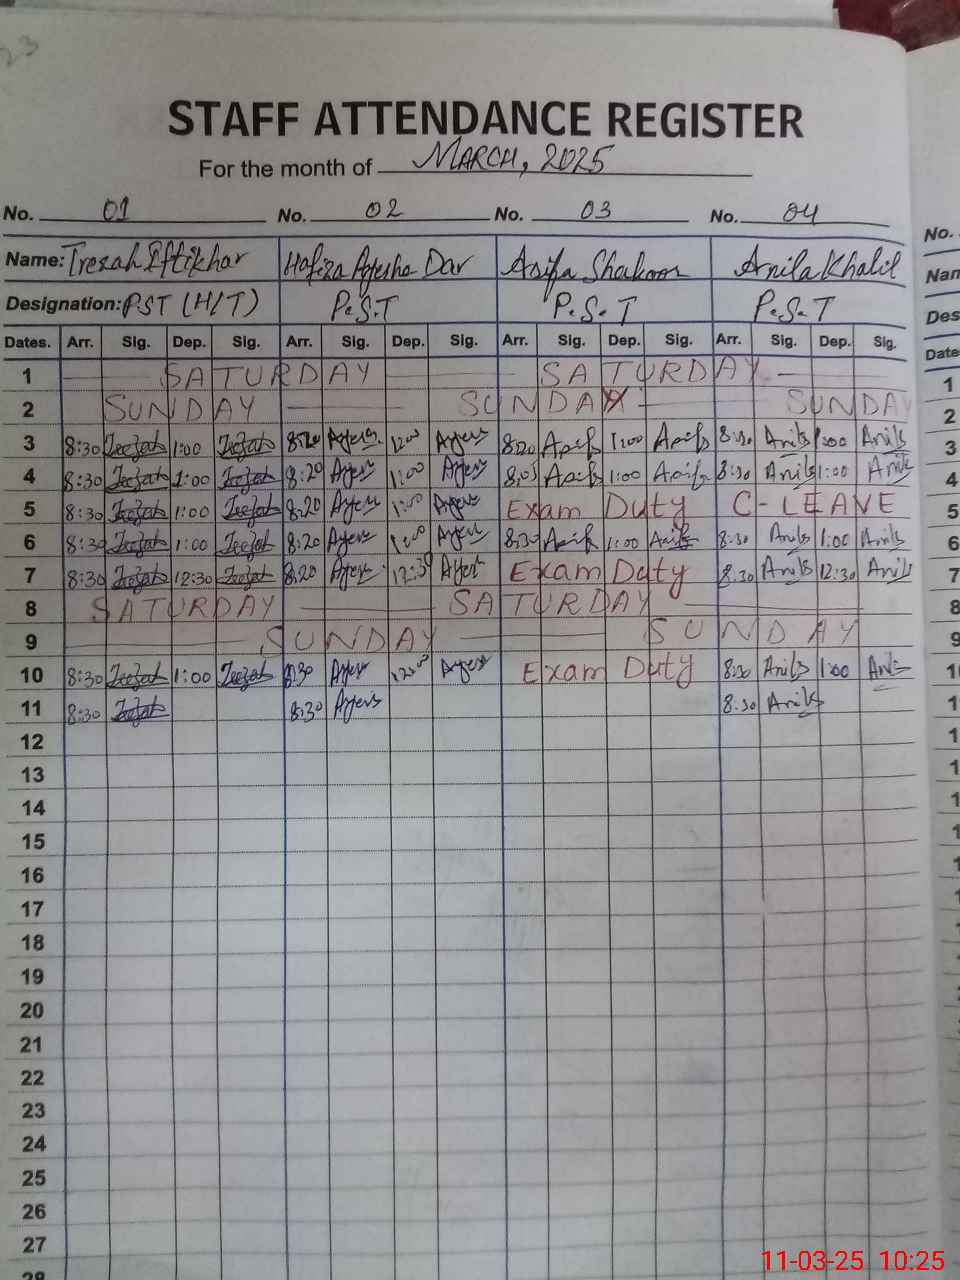 23
STAFF ATTENDANCE REGISTER
For the month of MARCH, 2025
No. 01 No. 02 No. 03 No. 04 No.
Name: Trezah Iftikhar Hafiza Ayesha Dar Asifa Shakoor Anila Khalil Nam
Designation: PST (H/T) P.S.T P.S.T P.S.T Des
Dates. Arr. Sig. Dep. Sig. Arr. Sig. Dep. Sig. Arr. Sig. Dep. Sig. Arr. Sig. Dep. Sig. Date
1 SATURDAY SATURDAY 1
2 SUNDAY SUNDAY SUNDAY 2
3 8:30 1:00 8:20 Ayesha 1:00 Ayesha 8:20 Asifa 1:00 Asifa 8:30 Anila 1:00 Anila 3
4 8:30 1:00 8:20 Ayesha 1:00 Ayesha 8:05 Asifa 1:00 Asifa 8:30 Anila 1:00 Anila 4
5 8:30 1:00 8:20 Ayesha 1:00 Ayesha Exam Duty C-LEAVE 5
6 8:30 1:00 8:20 Ayesha 1:00 Ayesha 8:30 Asifa 1:00 Asifa 8:30 Anila 1:00 Anila 6
7 8:30 12:30 8:20 Ayesha 12:30 Ayesha Exam Duty 8:30 Anila 12:30 Anila 7
8 SATURDAY SATURDAY 8
9 SUNDAY SUNDAY 9
10 8:30 1:00 8:30 Ayesha Ayesha Exam Duty 8:30 Anila 1:00 Anila 10
11 8:30 8:30 Ayesha 8:30 Anila 1
12 1
13 1
14 1
15 1
16 1
17 1
18 1
19
20
21
22
23
24
25
26
27
28
11-03-25 10:25